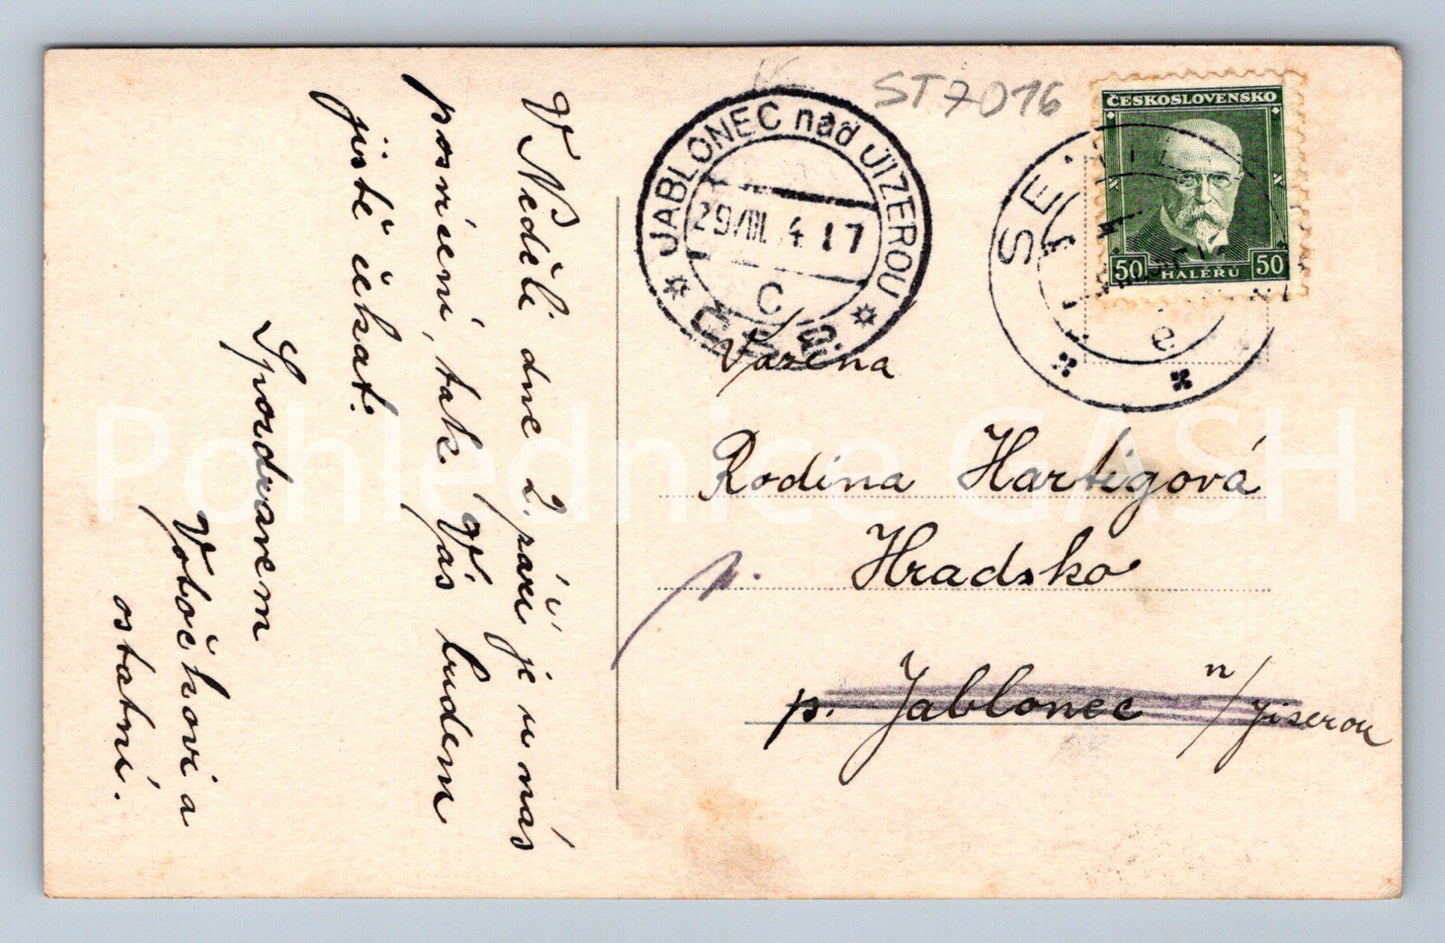 V Neděli dne 2. září je u nás
posvícení, tak Vás budem
jistě čekat.
S pozdravem
Votočkovi a
ostatní.
ST7016
JABLONEC nad JIZEROU
29/VIII. 4 17
C
ČESKOSLOVENSKO
50 HALÉŘŮ 50
SE
e
Vážená
Rodina Hartigová
Hradsko
p.
p. Jablonec n/Jizerou
Pohlednice CASH